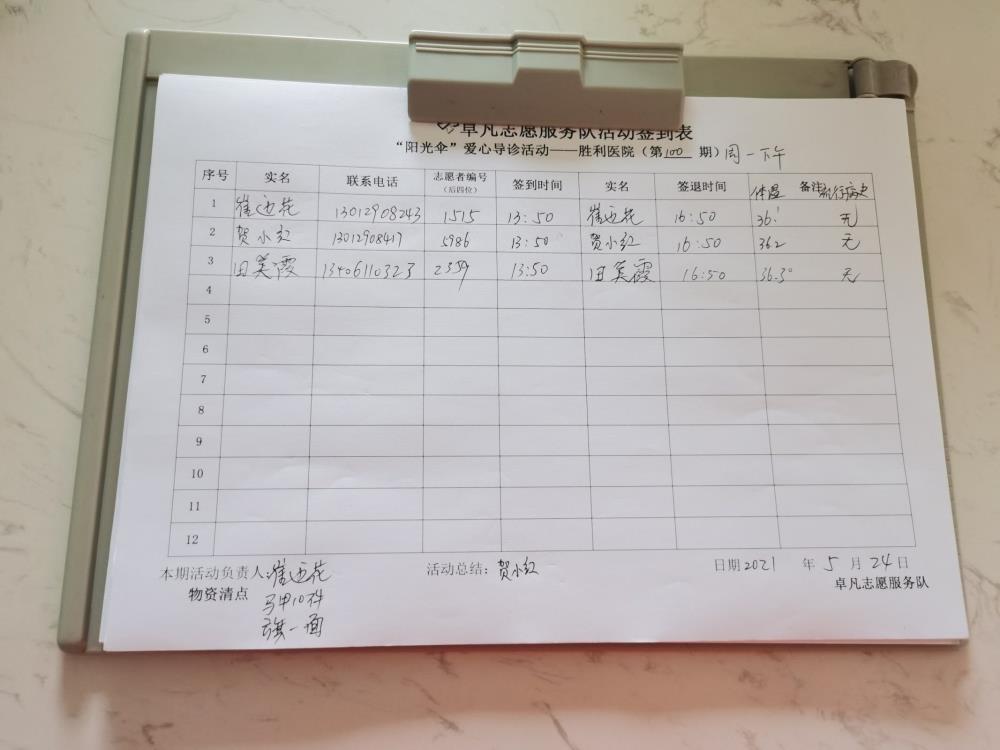 卓凡志愿服务队活动签到表
“阳光伞”爱心导诊活动——胜利医院（第 100 期）周一下午
序号 实名 联系电话 志愿者编号（后四位） 签到时间 实名 签退时间 体温 备注 流行病史
1 崔迎花 13012908243 1515 13:50 崔迎花 16:50 36.1 无
2 贺小红 13012908417 5986 13:50 贺小红 16:50 36.2 无
3 田美霞 13406110323 13:50 田美霞 16:50 36.3° 无
4
5
6
7
8
9
10
11
12
本期活动负责人:崔迎花 活动总结：贺小红 日期 2021 年 5 月 24 日
物资清点 卓凡志愿服务队
马甲10件
旗一面